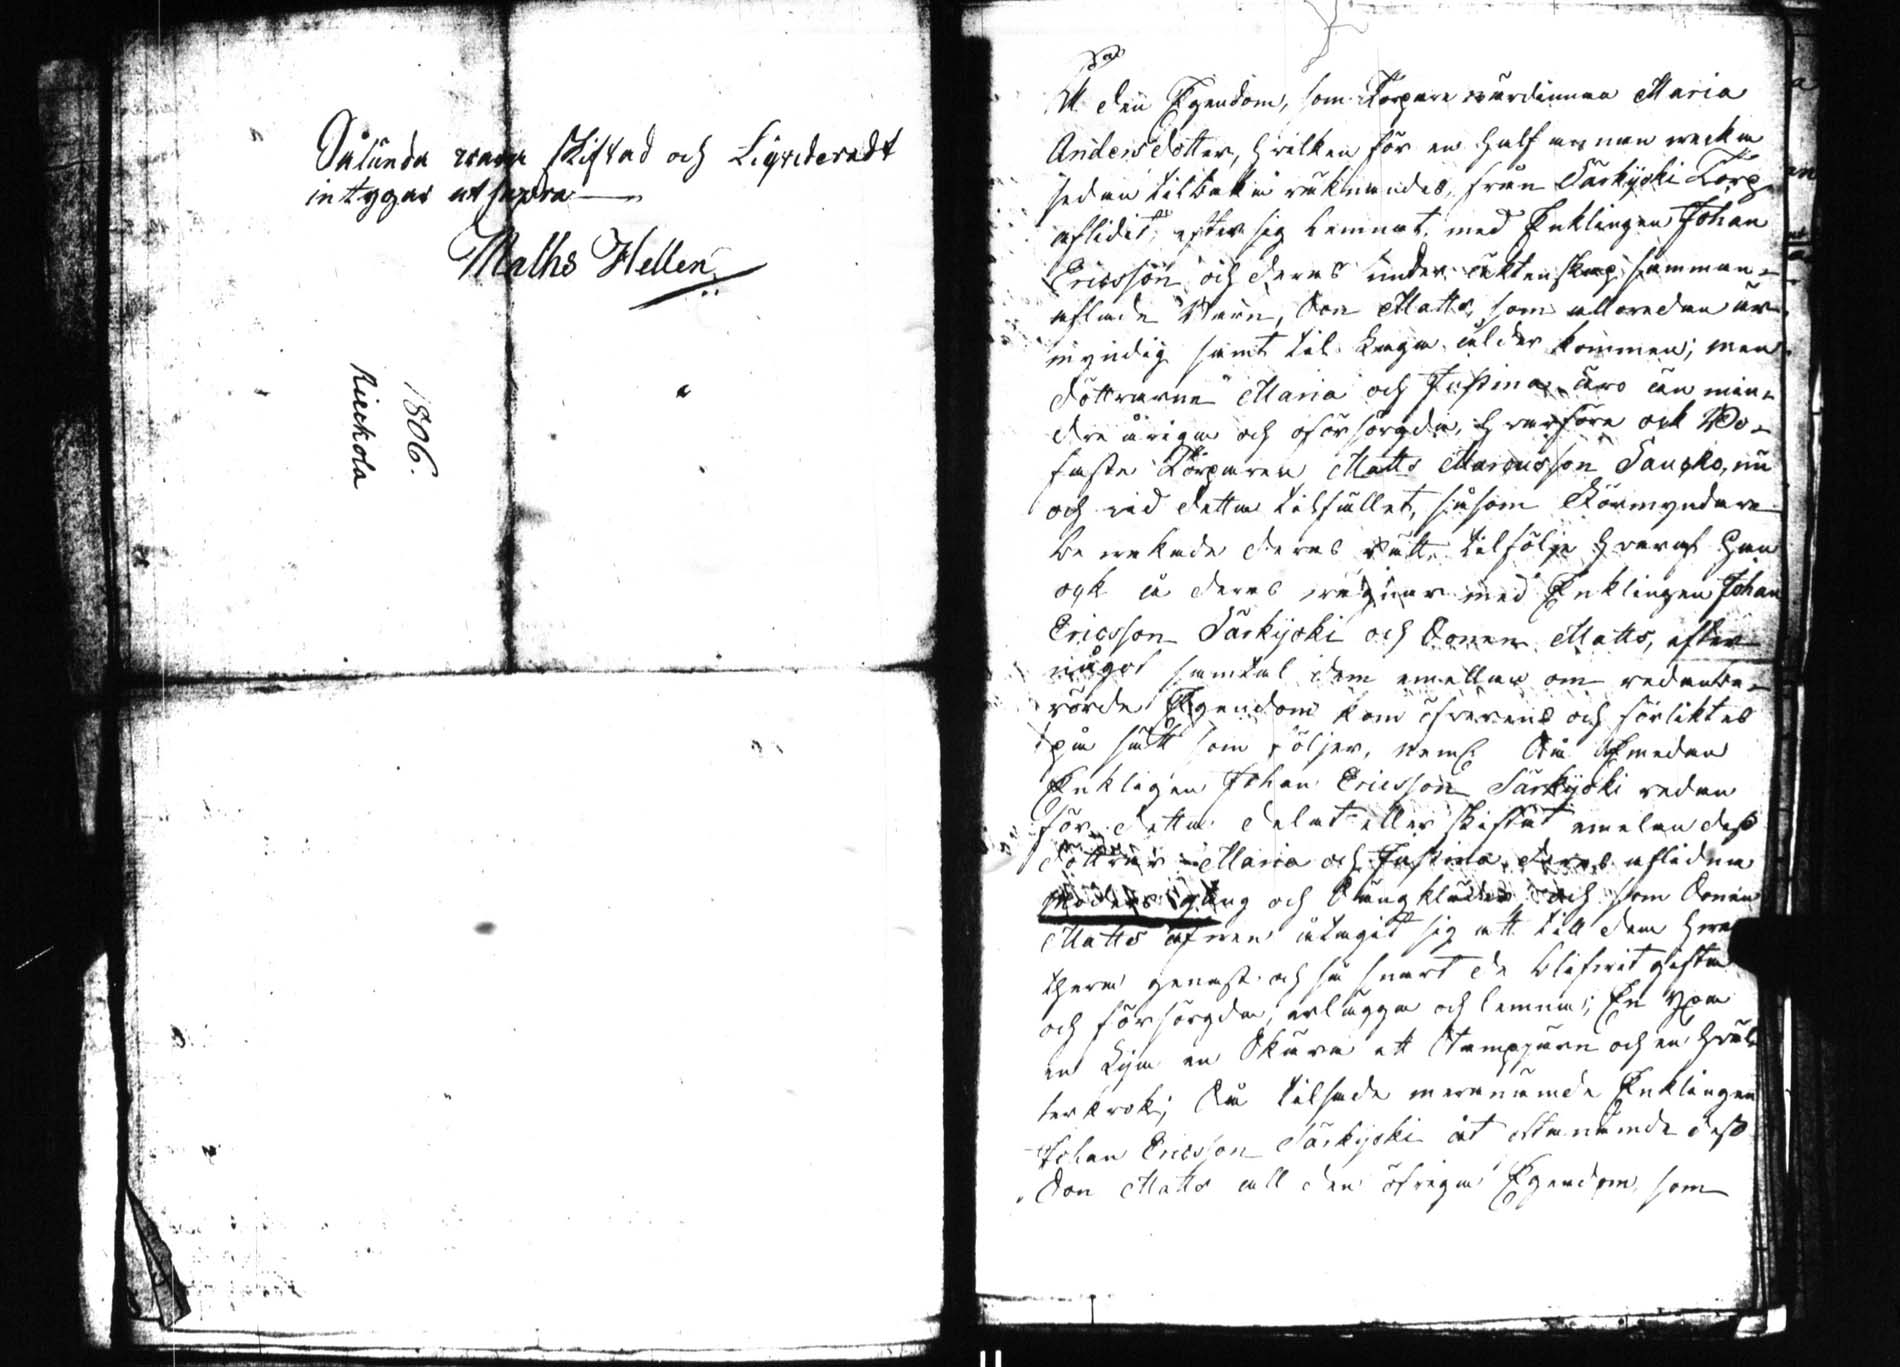 Sålunda vara Skiftad och Liqvideradt
intygar ut supra
Maths Hellen
1806.
Rieckola
Af den Egendom, som Torpare wärdinnan Maria
Andersdotter, hvilken för en half annan wecka
sedan tilbaka räknandes, från Särkijoki Torp
aflidit, efter sig lemnat, med Enklingen Johan
Ericsson och deras under äktenskap samman-
aflade Barn, Son Matts, som allaredan är
myndig samt til laga ålder kommen; men
döttrarne Maria och Justina äro än min-
dre åriga och oförsörgda, hvarföre ock Bo-
faste Torparen Matts Marcusson Sau̇ko, nu
och vid detta tilfället, såsom Förmyndare
bevakade deras rätt, tilfölje hvaraf han
ock å deras vägnar med Enklingen Johan
Ericsson Särkijoki och Sonen Matts, efter
något samtal dem emellan om redanbe-
rörde Egendom kom öfverens och förliktes
på sätt som följer, neml. Så Emedan
Enklingen Johan Ericsson Särkijoki redan
för detta delat eller skiftat emelan dess
döttrar Maria och Justina deras aflidna
Moders gång och Sängkläder och som Sonen
Matts äfven åtagit sig att till dem hvar-
thera genast och så snart de blifvit gifta
och försörgda, erlägga och lemna; En
en en Skära ett och en
; Så tilsade meranämde Enklingen
Johan Ericsson Särkijoki åt ofta nämde dess
Son Matts all den öfriga Egendom, som